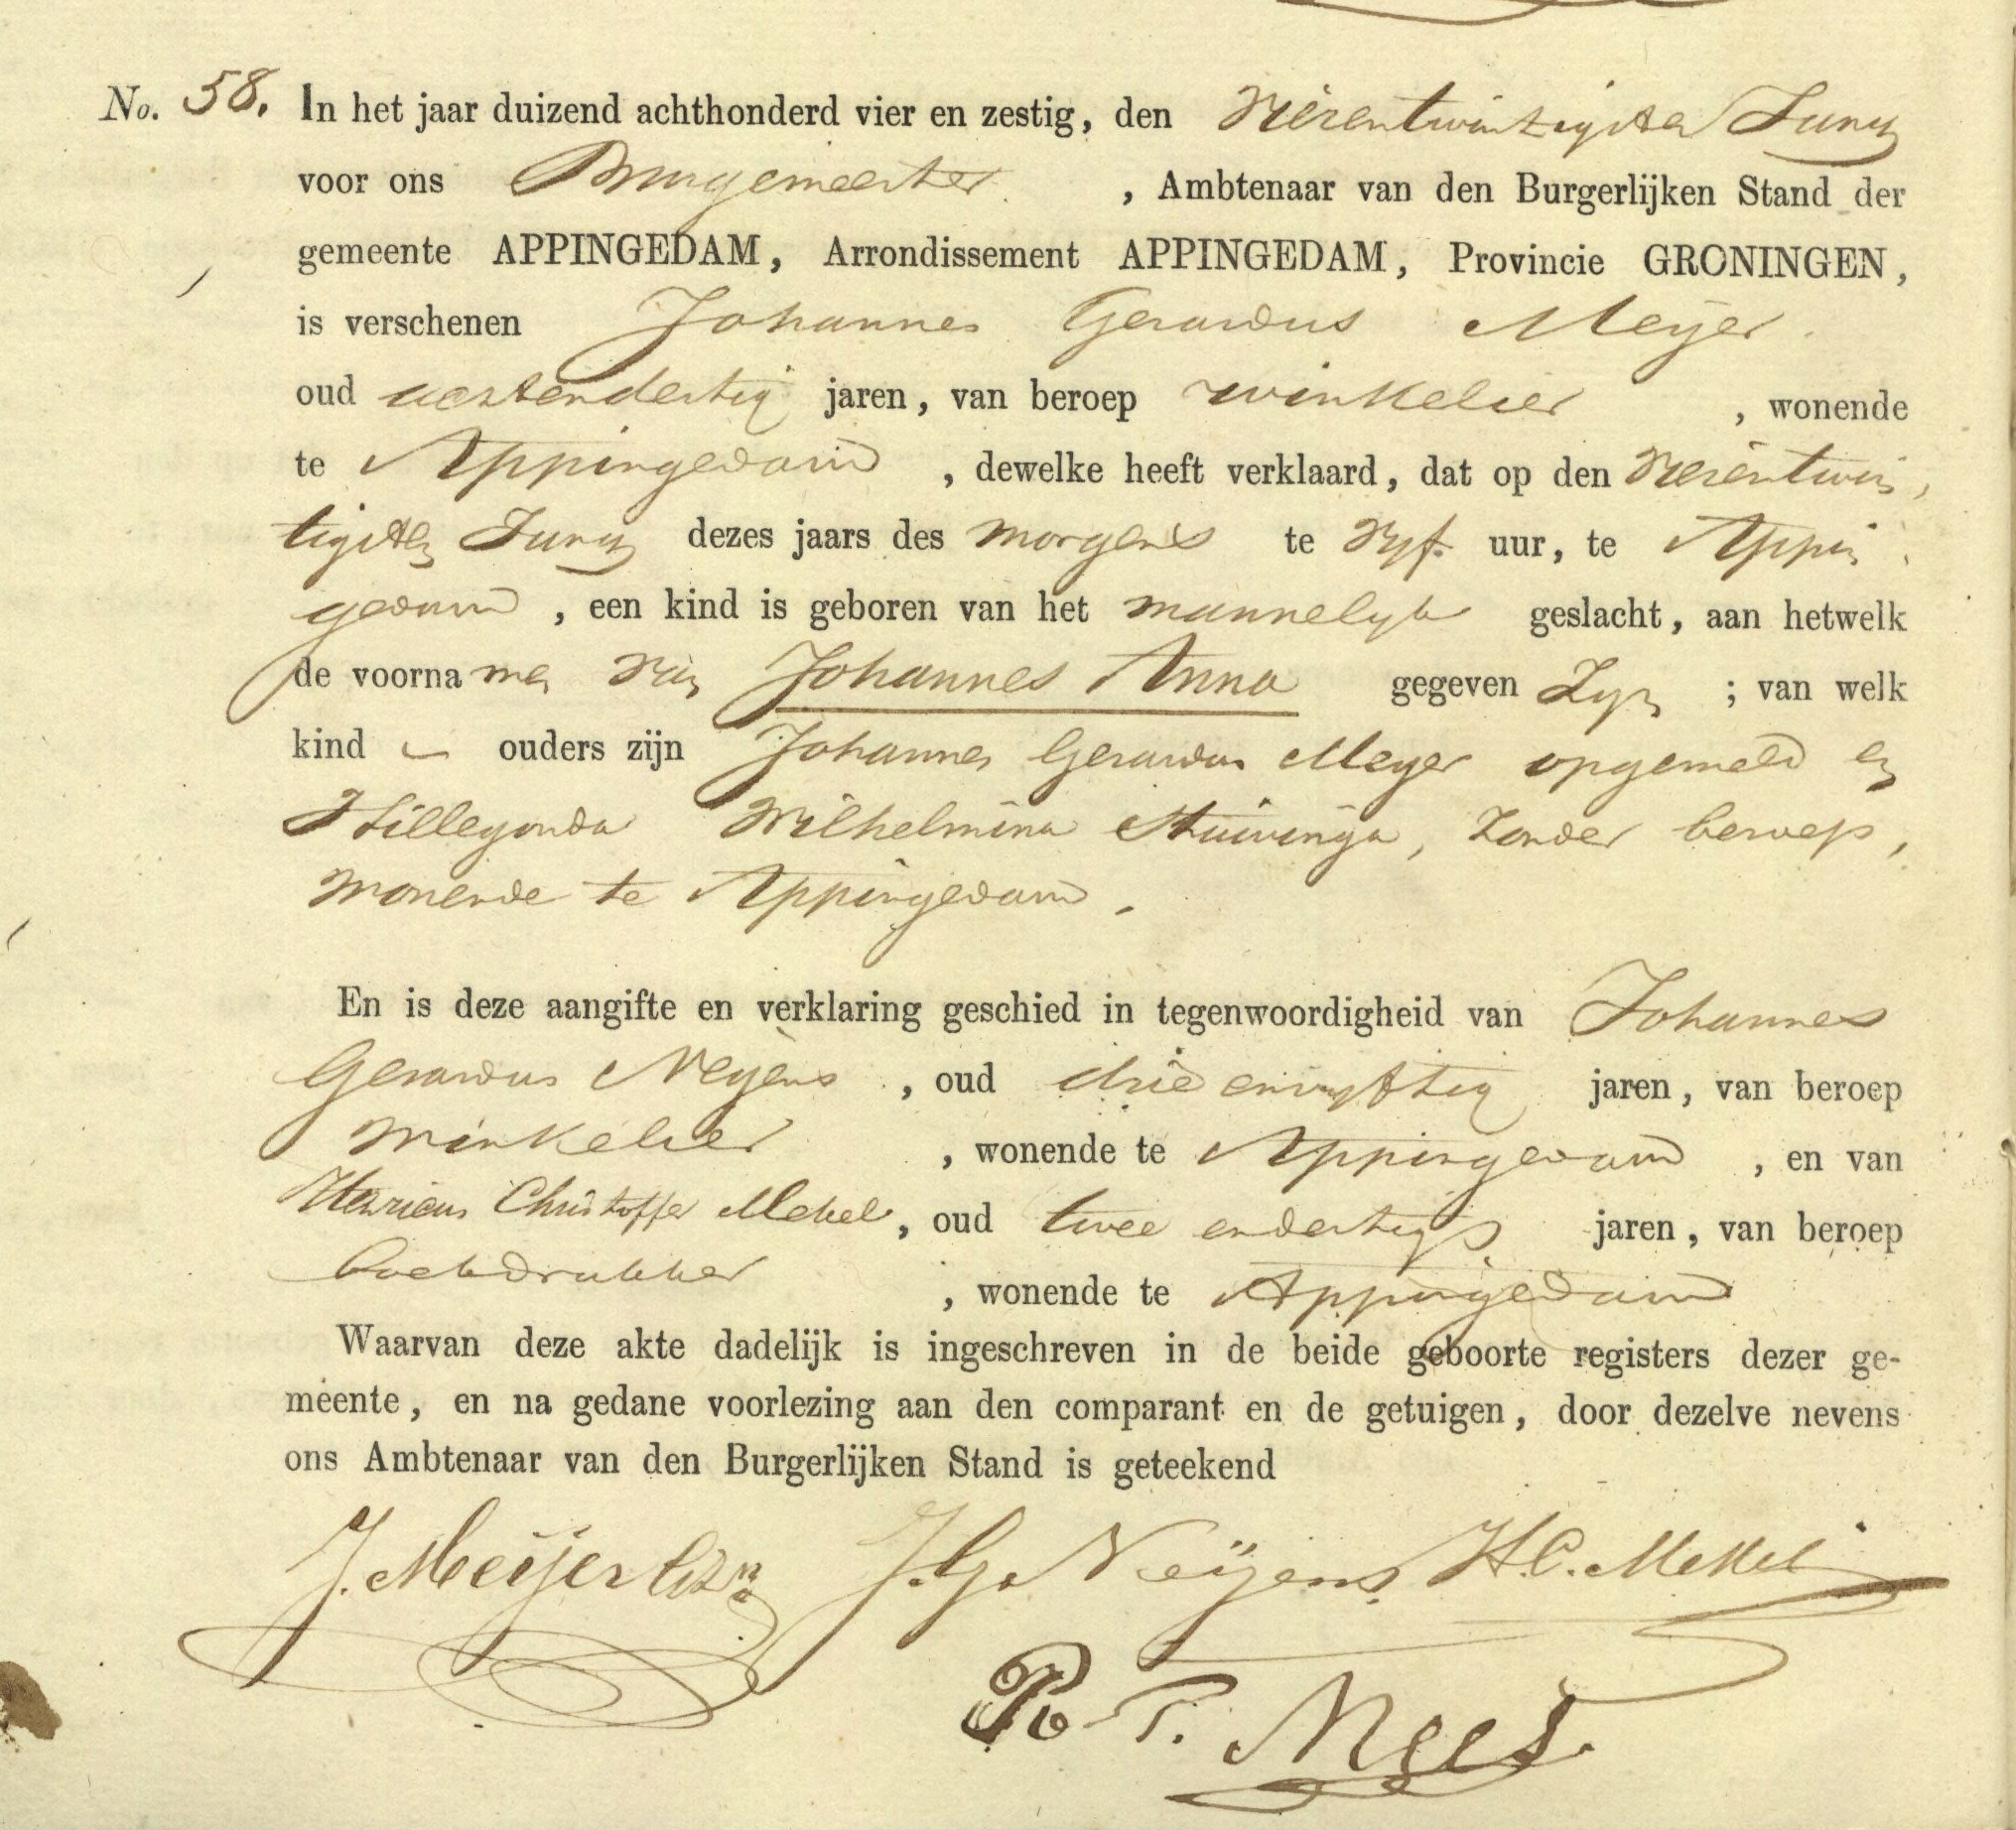 No. 58. In het jaar duizend achthonderd vier en zestig, den vierentwintigsten Juny
voor ons Burgemeester , Ambtenaar van den Burgerlijken Stand der
gemeente APPINGEDAM, Arrondissement APPINGEDAM, Provincie GRONINGEN,
is verschenen Johannes Gerardus Meijer
oud achtendertig jaren, van beroep winkelier , wonende
te Appingedam , dewelke heeft verklaard, dat op den vierentwin
tigsten Juny dezes jaars des morgens te vyf uur, te Appin
gedam , een kind is geboren van het mannelyk geslacht, aan hetwelk
de voornamen van Johannes Anna gegeven Zyn ; van welk
kind ouders zijn Johannes Gerardus Meyer opgemeld en
Hillegonda Wilhelmina Stuivinga, zonder beroep,
wonende te Appingedam.
En is deze aangifte en verklaring geschied in tegenwoordigheid van Johannes
Gerardus Neyens , oud drieenvyftig jaren, van beroep
winkelier , wonende te Appingedam , en van
Christoffer Mekel, oud twee endertig jaren, van beroep
boekdrukker , wonende te Appingedam
Waarvan deze akte dadelijk is ingeschreven in de beide geboorte registers dezer ge-
meente, en na gedane voorlezing aan den comparant en de getuigen, door dezelve nevens
ons Ambtenaar van den Burgerlijken Stand is geteekend
J. Meijer J.G. Neijens H.C. Mekel
P. T. Mees